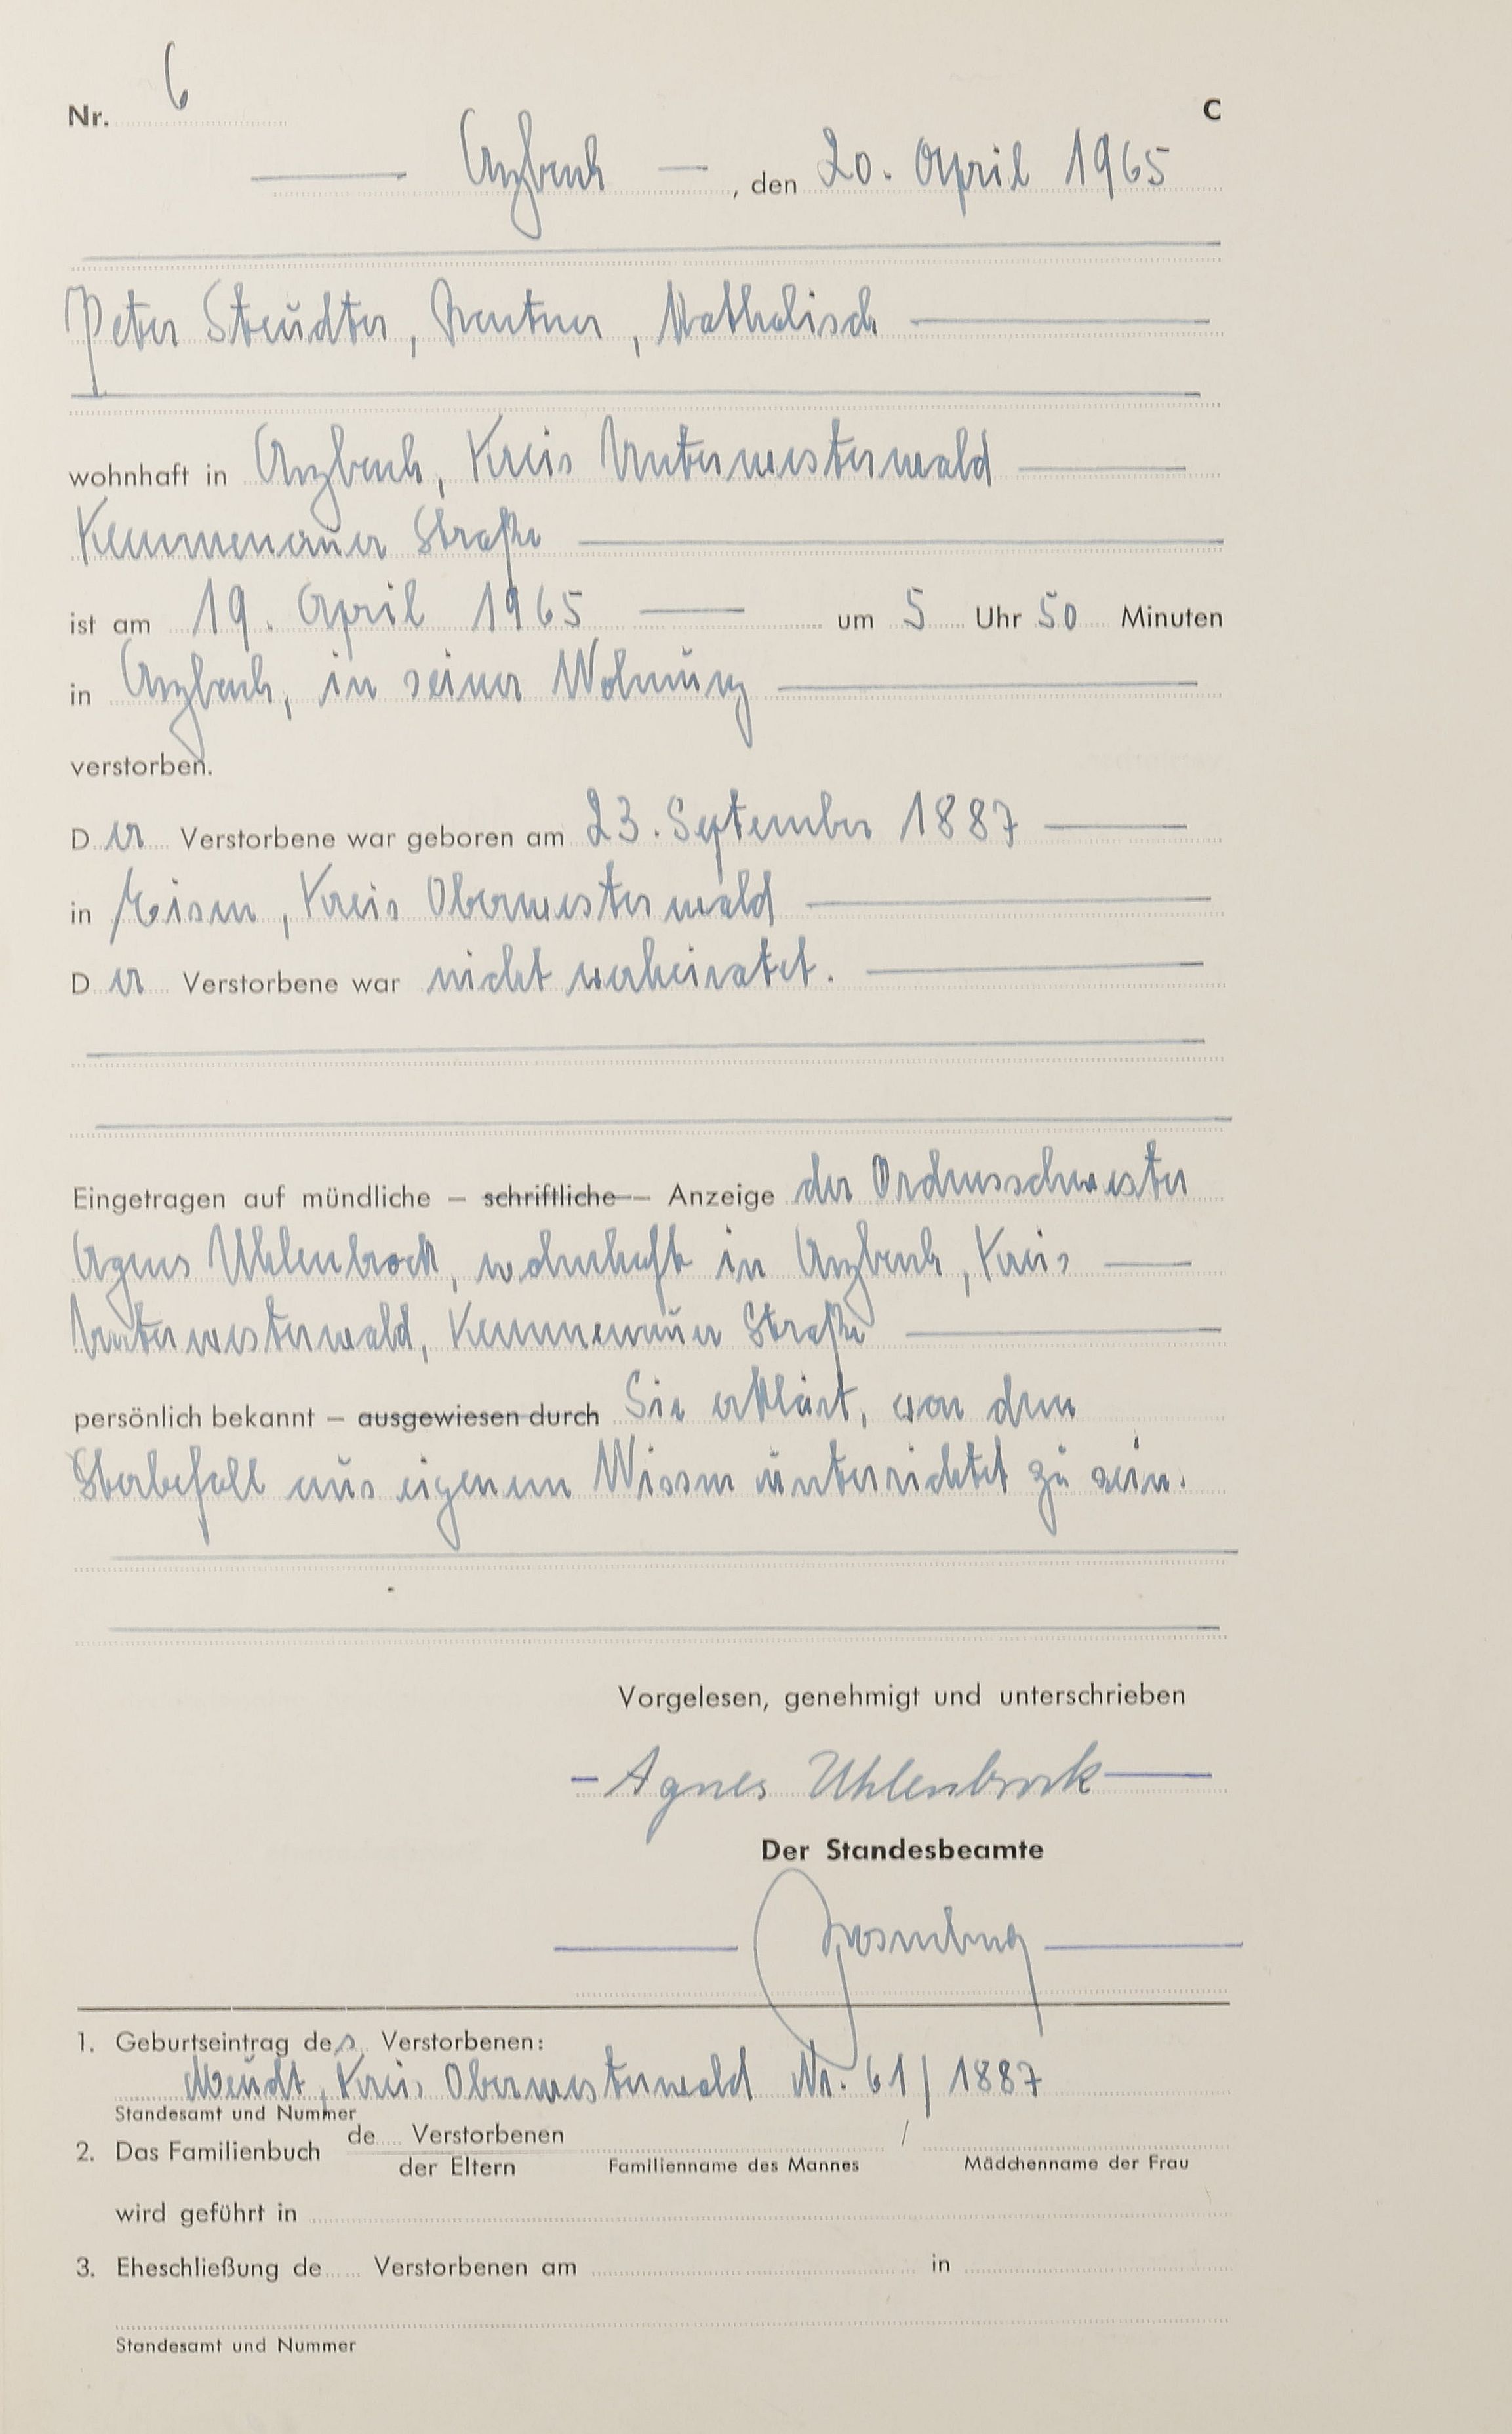 Nr. 6 C
Arzbach, den 20. April 1965
Peter Steudter, Rentner, Katholisch
wohnhaft in Arzbach, Kreis Unterwesterwald
Kemmenauer Straße
ist am 19. April 1965 um 5 Uhr 50 Minuten
in Arzbach, in seiner Wohnung
verstorben.
Der Verstorbene war geboren am 23. September 1887
in Eisen, Kreis Oberwesterwald
Der Verstorbene war nicht verheiratet.
Eingetragen auf mündliche – schriftliche – Anzeige der Ordensschwester
Agnes Uhlenbrock, wohnhaft in Arzbach, Kreis
Unterwesterwald, Kemmenauer Straße
persönlich bekannt – ausgewiesen durch Sie erklärt, von dem
Sterbefall aus eigenem Wissen unterrichtet zu sein.
Vorgelesen, genehmigt und unterschrieben
Agnes Uhlenbrock
Der Standesbeamte
1. Geburtseintrag des Verstorbenen:
Meudt, Kreis Oberwesterwald Nr. 61/1887
Standesamt und Nummer
2. Das Familienbuch de Verstorbenen /
der Eltern Familienname des Mannes Mädchenname der Frau
wird geführt in
3. Eheschließung de Verstorbenen am in
Standesamt und Nummer